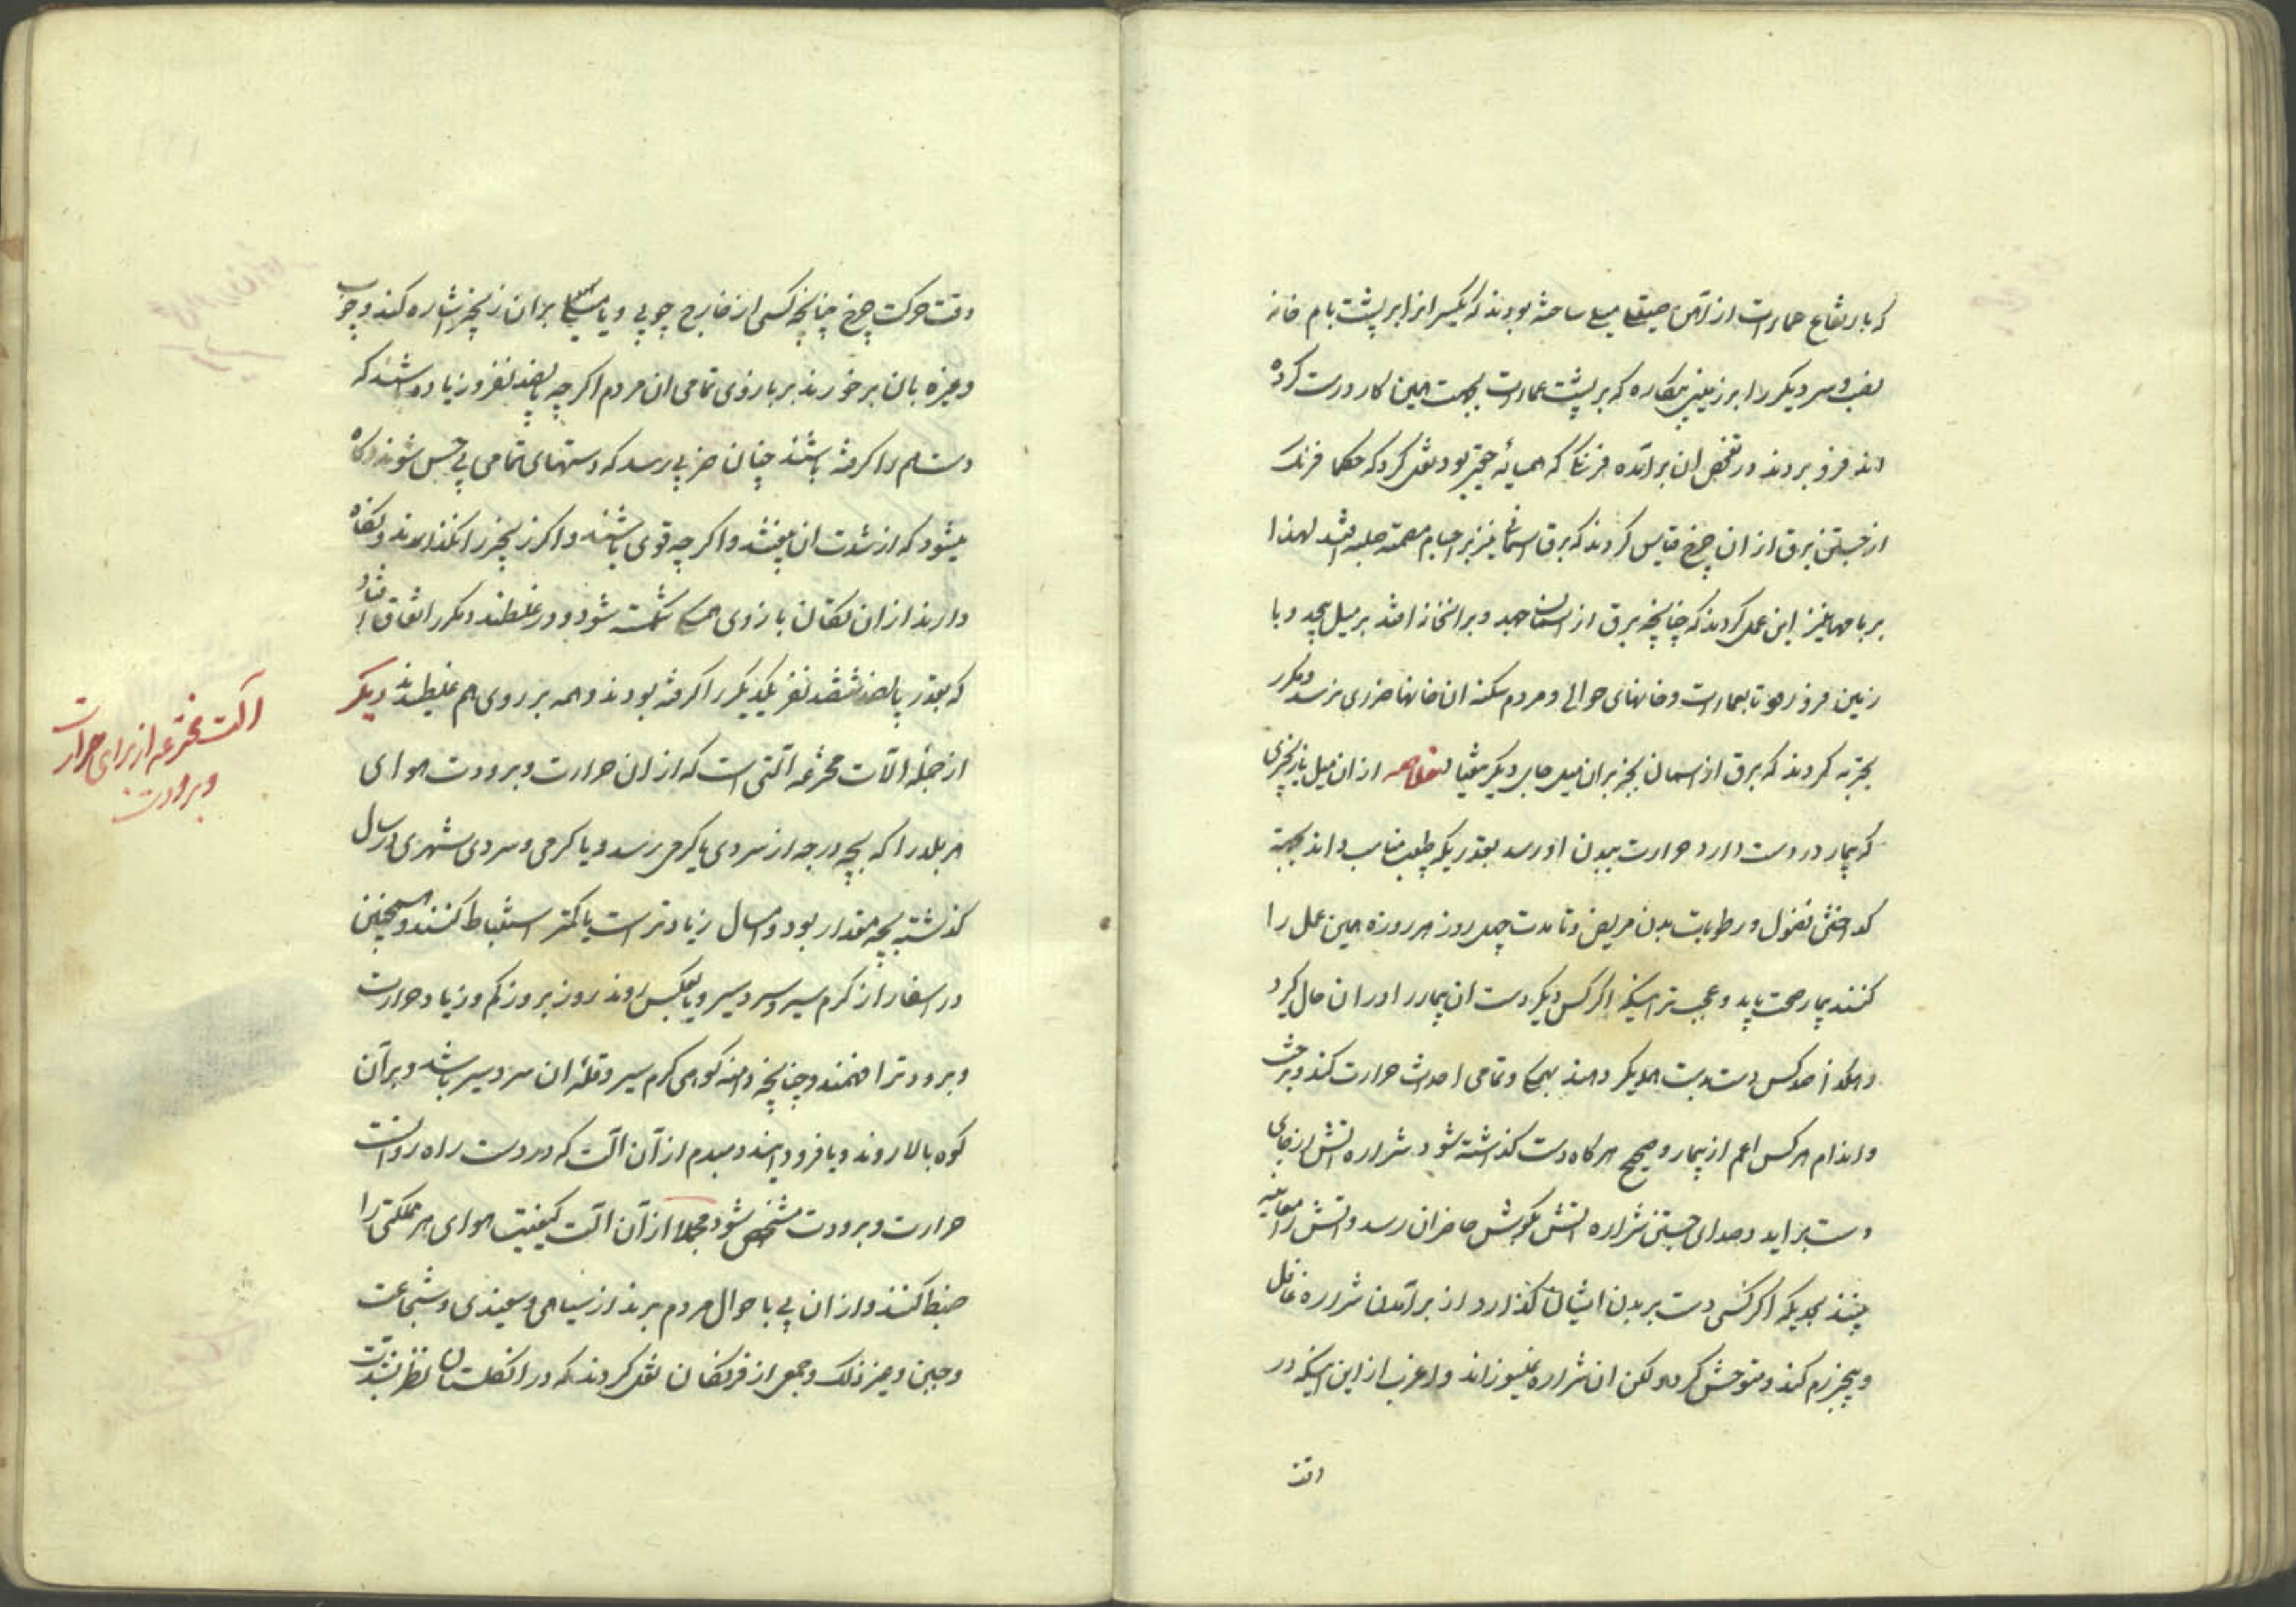 که بارتفاع عمارت از آهن صیقلی میلی ساخته بودند که یکسر انرا بر پشت بام خانه
نصب و سر دیگر را بر زمین که بر پشت عمارت بجهت همین کار درست کرده
اند فرو بردند در تفحص ان برآمده فرنگی که همسایه حقیر بود نقل کرد که حکما فرنک
از جستن برق از ان چرخ قیاس کردند که برق اسمانی نیز بر اجسام باشد لهذا
بر بامها نیز این عمل کردند که چنانچه برق از اسمان جهد و بر انخانه افتد بر میل پیچد و با
زمین فرو رود تا بعمارت و خانهای حوالی و مردم سکنه ان خانها ضرری نرسد و مکرر
تجربه کردند که برق از اسمان بجز بران میل جای دیگر نیفتاد خلاصه از ان میل با زنجیری
که بیمار در دست دارد حرارت ببدن او رسد بقدریکه طبیب مناسب داند بجهة
کداختن فضول و رطوبات بدن مریض و تا مدت چهل روز هر روزه همین عمل را
کنند بیمار صحت یابد و عجب تر اینکه اگر کس دیگر دست ان بیمار را در ان حال گیرد
و هکذا صد کس دست بدست همدیگر دهند بهمکی و تمامی احداث حرارت کند و بر جثه
و اندام هر کس اعم از بیمار و صحیح هر کاه دست گذاشته شود شراره اتش از جای
دست براید و صدای جستن شراره اتش بگوش حاضران رسد و اتش را معاینه
بینند بحدیکه اگر کسی دست بر بدن ایشان گذارد و از برآمدن شراره غافل
و بیخبر رم کند و متوحش گردد و لکن ان شراره نمیسوزاند و اغرب از این اینکه در
وقت
وقت حرکت چرخ چنانچه کسی از خارج چوبی و یا میلی بران زنجیر اشاره کند و چوب
و غیره بان بر خورند بر بازوی تمامی ان مردم اگر چه پانصد نفر و زیاده باشند که
دست هم را گرفته باشند چنان ضربی رسد که دستهای تمامی بی حس شوند و کاه
میشود که از شدت ان بیفتند و اگر چه قوی باشند و اگر زنجیر را نگذارند و نگاه
دارند از ان تکان بازوی همه شکسته شود و در غلطند و مکرر اتفاق افتاد
که بقدر پانصد ششصد نفر یکدیگر را گرفته بودند و همه بر روی هم غلطیدند دیگر
از جمله الات مخترعه آلتی است که از ان حرارت و برودت هوای
هر بلد را که بچه درجه از سردی یا گرمی رسد و یا گرمی و سردی شهری در سال
گذشته بچه مقدار بود و امسال زیادتر است یا کمتر استنباط کنند و همچنین
در اسفار از گرم سیر و سردسیر و یا بعکس روند روز بروز کم و زیاد حرارت
و برودت را فهمند و چنانچه دامنه کوهی گرم سیر و قله ان سردسیر باشد و بر آن
کوه بالا روند و یا فرود ایند دمبدم از آن الت که در دست راه روانست
حرارت و برودت مشخص شود و مجملا از آن الت کیفیت هوای هر مملکتی را
ضبط کنند و از ان پی با حوال مردم برند از سیاهی و سفیدی و شجاعت
و جبن و غیر ذلک و جمعی از فرنگیان نقل کردند که در انگلستان نظر بشدت
آلت مخترعه از برای حرارت
و برودت